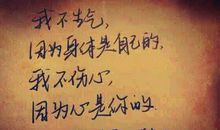 我不生气,
因为身体是自己的.
我不伤心,
因为心是你的.